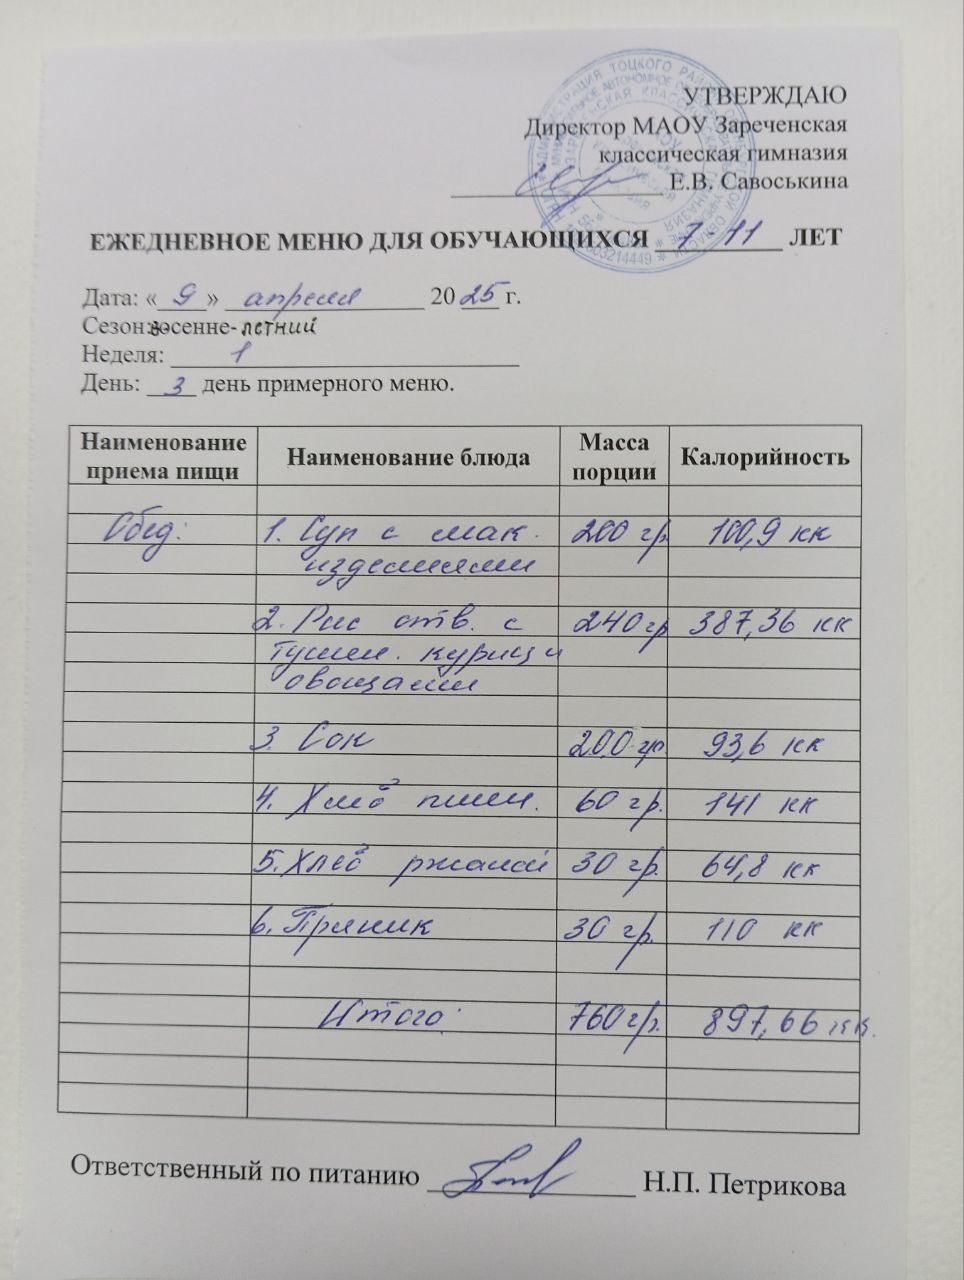 УТВЕРЖДАЮ
Директор МАОУ Зареченская
классическая гимназия
Е.В. Савоськина
ЕЖЕДНЕВНОЕ МЕНЮ ДЛЯ ОБУЧАЮЩИХСЯ 7-11 ЛЕТ
Дата: «9» апреля 2025 г.
Сезон: весенне-летний
Неделя: 1
День: 3 день примерного меню.
Наименование приема пищи Наименование блюда Масса порции Калорийность
Обед: 1. Суп с мак. 200 гр. 100,9 кк
изделиями
2. Рис отв. с 240 гр 387,36 кк
тушен. курицы
овощами
3. Сок 200 гр 93,6 кк
4. Хлеб пшен. 60 гр. 141 кк
5. Хлеб ржаной 30 гр. 64,8 кк
6. Пряник 30 гр. 110 кк
Итого: 760 гр. 897,66 кк.
Ответственный по питанию Н.П. Петрикова